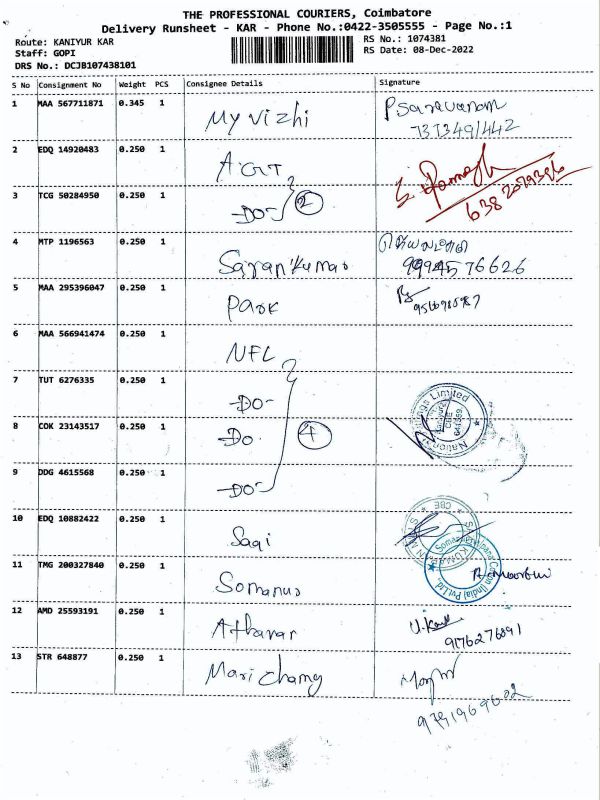 THE PROFESSIONAL COURIERS, Coimbatore
Delivery Runsheet - KAR - Phone No.:0422-3505555 - Page No.:1
Route: KANIYUR KAR
RS No.: 1074381
Staff: GOPI
RS Date: 08-Dec-2022
DRS No.: DCJB107438101
S No Consignment No Weight PCS Consignee Details Signature
1 MAA 567711871 0.345 1 My vizhi P Saravanam
7373491442
2 EDQ 14920483 0.250 1
3 TCG 50284950 0.250 1 -DO- 2
6382079396
4 MTP 1196563 0.250 1 Saran Kumar
9994576626
5 MAA 295396047 0.250 1 Park
6 MAA 566941474 0.250 1 NFL
7 TUT 6276335 0.250 1 -DO-
8 COK 23143517 0.250 1 -DO- 4
9 DDG 4615568 0.250 1 -DO-
10 EDQ 10882422 0.250 1 Sagi
11 TMG 200327840 0.250 1 Somanus
12 AMD 25593191 0.250 1 Atharar
9176276891
13 STR 648877 0.250 1 Mari chamy
9791969602